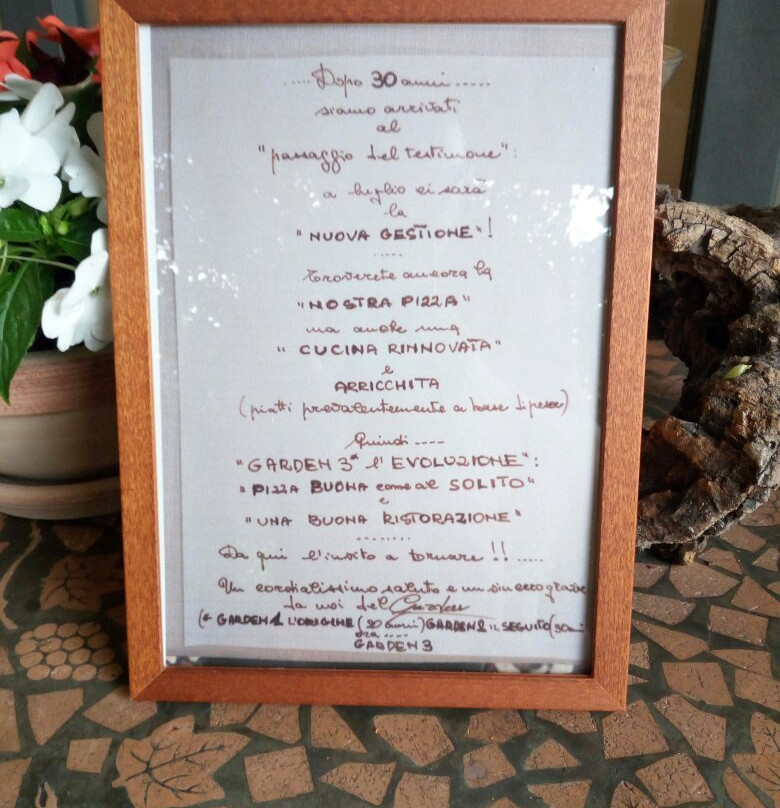 ..... Dopo 30 anni .....
siamo arrivati
al
"passaggio del testimone":
a luglio ci sarà
la
"NUOVA GESTIONE"!
.....
Troverete ancora la
"NOSTRA PIZZA"
ma anche una
"CUCINA RINNOVATA"
e
ARRICCHITA
(piatti prevalentemente a base di pesce)
Quindi ----
"GARDEN 3* l'EVOLUZIONE":
"PIZZA BUONA come al SOLITO"
e
"UNA BUONA RISTORAZIONE"
........
Da qui l'invito a tornare !! .....
Un cordialissimo saluto e un sincero grazie
da noi del Garden
(* GARDEN 1 L'ORIGINE ( anni) GARDEN 2 IL SEGUITO (
ora ....
GARDEN 3